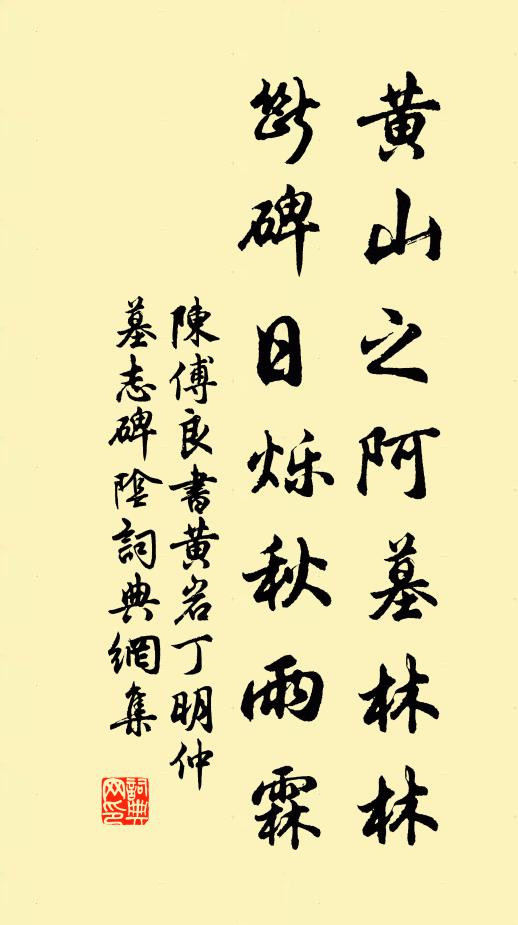 黄山之阿墓林林
斷碑日烁秋雨霖
陳傅良書黄岩丁明仲
墓志碑陰詞典網集
詞典网印